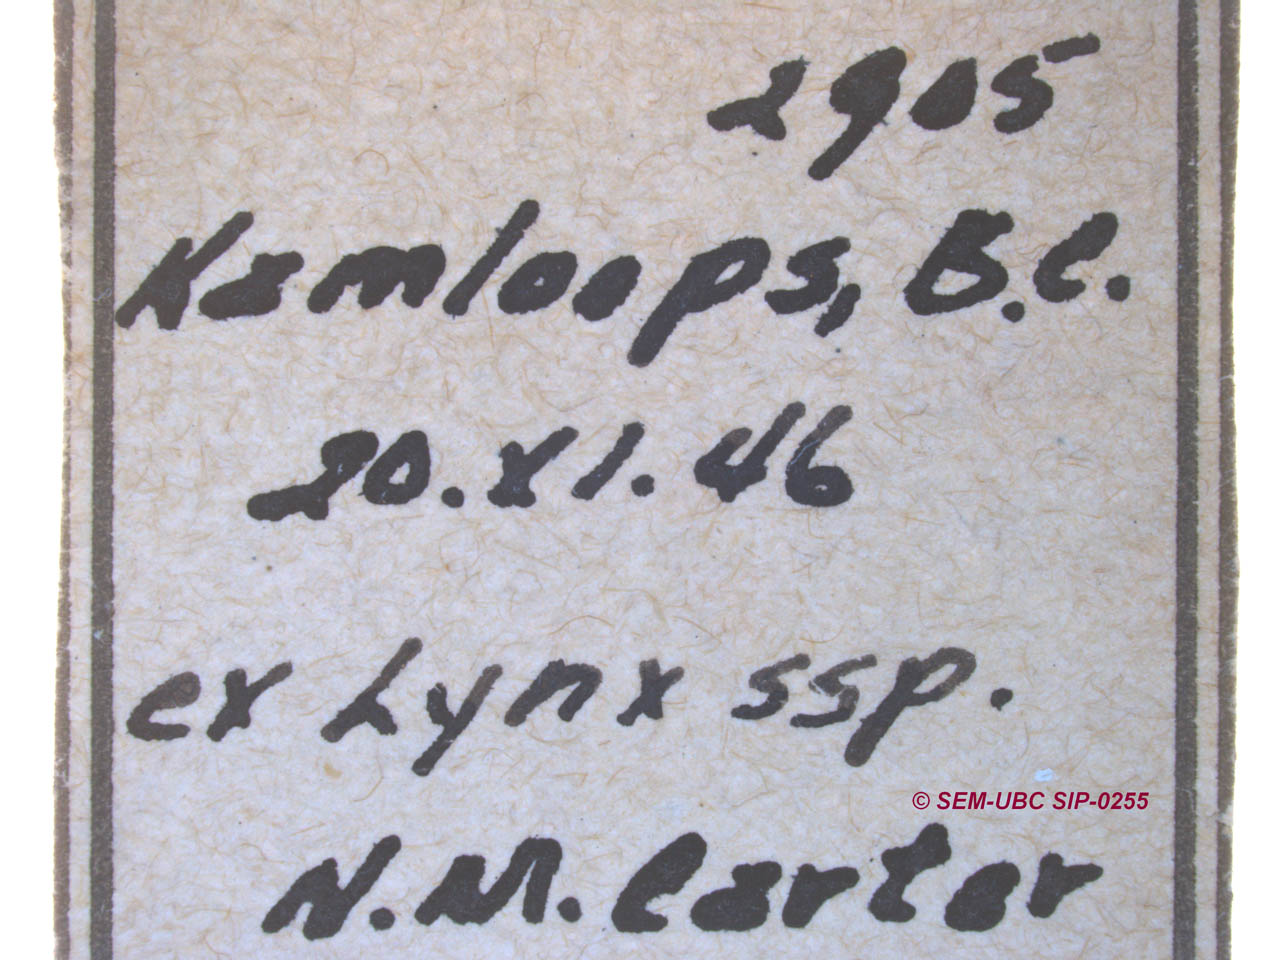 2905
Kamloops, B.C.
20.XI.46
ex Lynx ssp.
© SEM-UBC SIP-0255
N.M. Carter